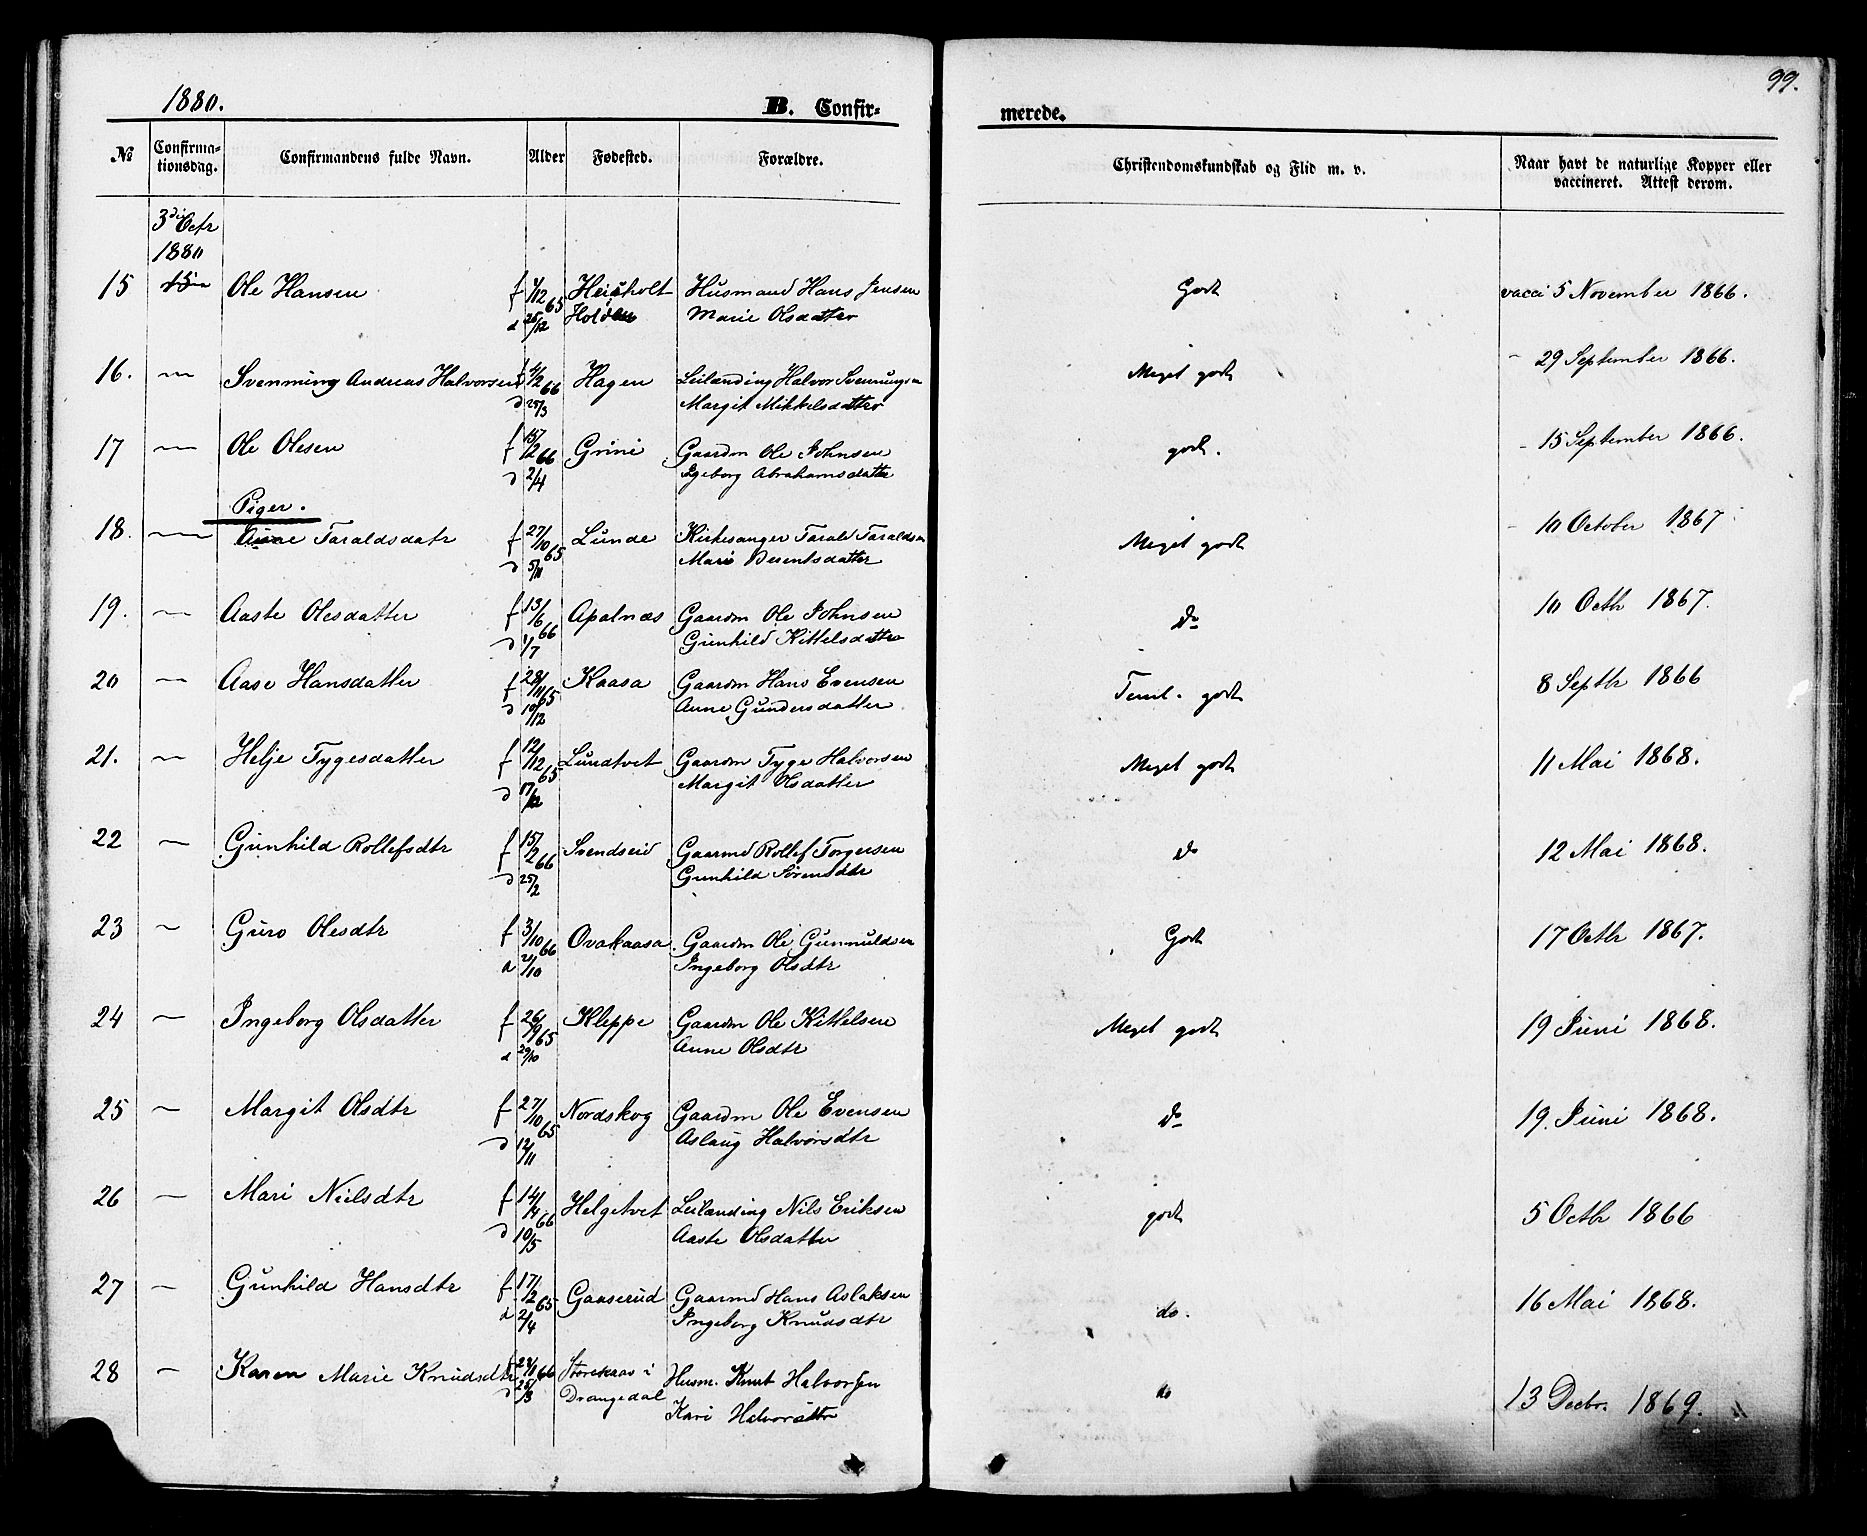 99.
1880. B. Confir- merede.
№ Confirma-tionsdag. Confirmandens fulde Navn. Alder Fødested. Forældre. Christendomskundskab og Flid m. v. Naar havt de naturlige Kopper eller vaccineret. Attest derom.
3die Octr
1880
15 Ole Hansen f 1/12 65 Husmand Hans Jensen Godt vacci 5 November 1866.
d 26/12 Holden Marie Olsdatter
16. — Svenning Andreas Halvorsen f 4/2 66 Hagen Leilænding Halvor Svenningsen Meget godt – 29 September 1866.
d 25/3 Margit Mikkelsdatter
17 — Ole Olesen f 15/2 66 Grini Gaardm Ole Johnsen godt. – 15 September 1866.
d 2/4 Ingeborg Abrahamsdatter
Piger.
18. — Anne Taraldsdatr f 27/10 65 Lunde Kirkesanger Tarald Taraldsen Meget godt – 10 October 1867
d 5/11 Mari Berentsdatter
19. — Aaste Olesdatter f 13/6 66 Apalnæs Gaardm Ole Johnsen Do 10 Octbr 1867.
d 1/7 Gunhild Kittelsdatter
20 — Aase Hansdatter f 28/11 65 Kaasa Gaardm Hans Evensen Teml. godt 8 Septbr 1866
d 10/12 Anne Gundersdatter
21. — Helje Tygesdatter f 12/12 65 Lundtvet Gaardm Tyge Halvorsen Meget godt 11 Mai 1868.
d 17/12 Margit Olsdatter
22 — Gunhild Rollefsdtr f 15/2 66 Svendseid Gaarmd Rollef Torgersen Do 12 Mai 1868.
d 25/2 Gunhild Sørensdtr
23 — Guro Olesdtr f 3/10 66 Ovakaasa. Gaardm Ole Gunnuldsen Godt 17 Octbr 1867.
d 21/10 Ingeborg Olsdtr
24 — Ingeborg Olsdatter f 26/9 65 Kleppe Gaardm Ole Kittelsen Meget godt 19 Juni 1868.
d 29/10 Anne Olsdtr
25 — Margit Olsdtr f 27/10 65 Nordskog Gaardm Ole Evensen Do 19. Juni 1868.
d 12/11 Aslaug Halvorsdtr
26 — Mari Nielsdtr f 14/4 66 Helgetvet Leilænding Nils Eriksen godt 5 Octbr 1866
d 10/5 Aaste Olsdatter
27 — Gunhild Hansdtr f 17/2 65 Gaaserud Gaarmd Hans Aslaksen do. 16 Mai 1868.
d 2/4 Ingeborg Knudsdtr
28 — Karen Marie Knudsdtr 66 i Husm. Knut Halvorsen do 13 Decbr. 1869.
d Drangedal Kari